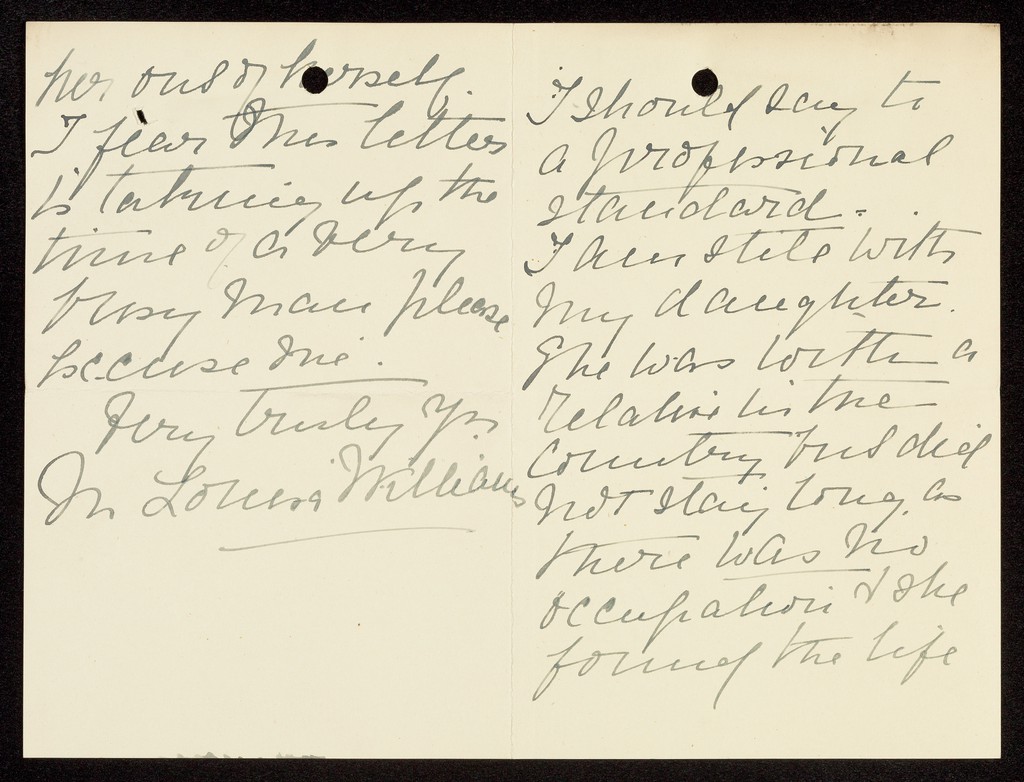 her out of herself.
I fear this letter
is taking up the
time of a very
busy man please
excuse me.
Very truly yrs
M Louisa Williams
I should say to
a professional
standard.
I am still with
my daughter.
She was with a
relative in the
country but did
not stay long, as
there was no
occupation & she
found the life